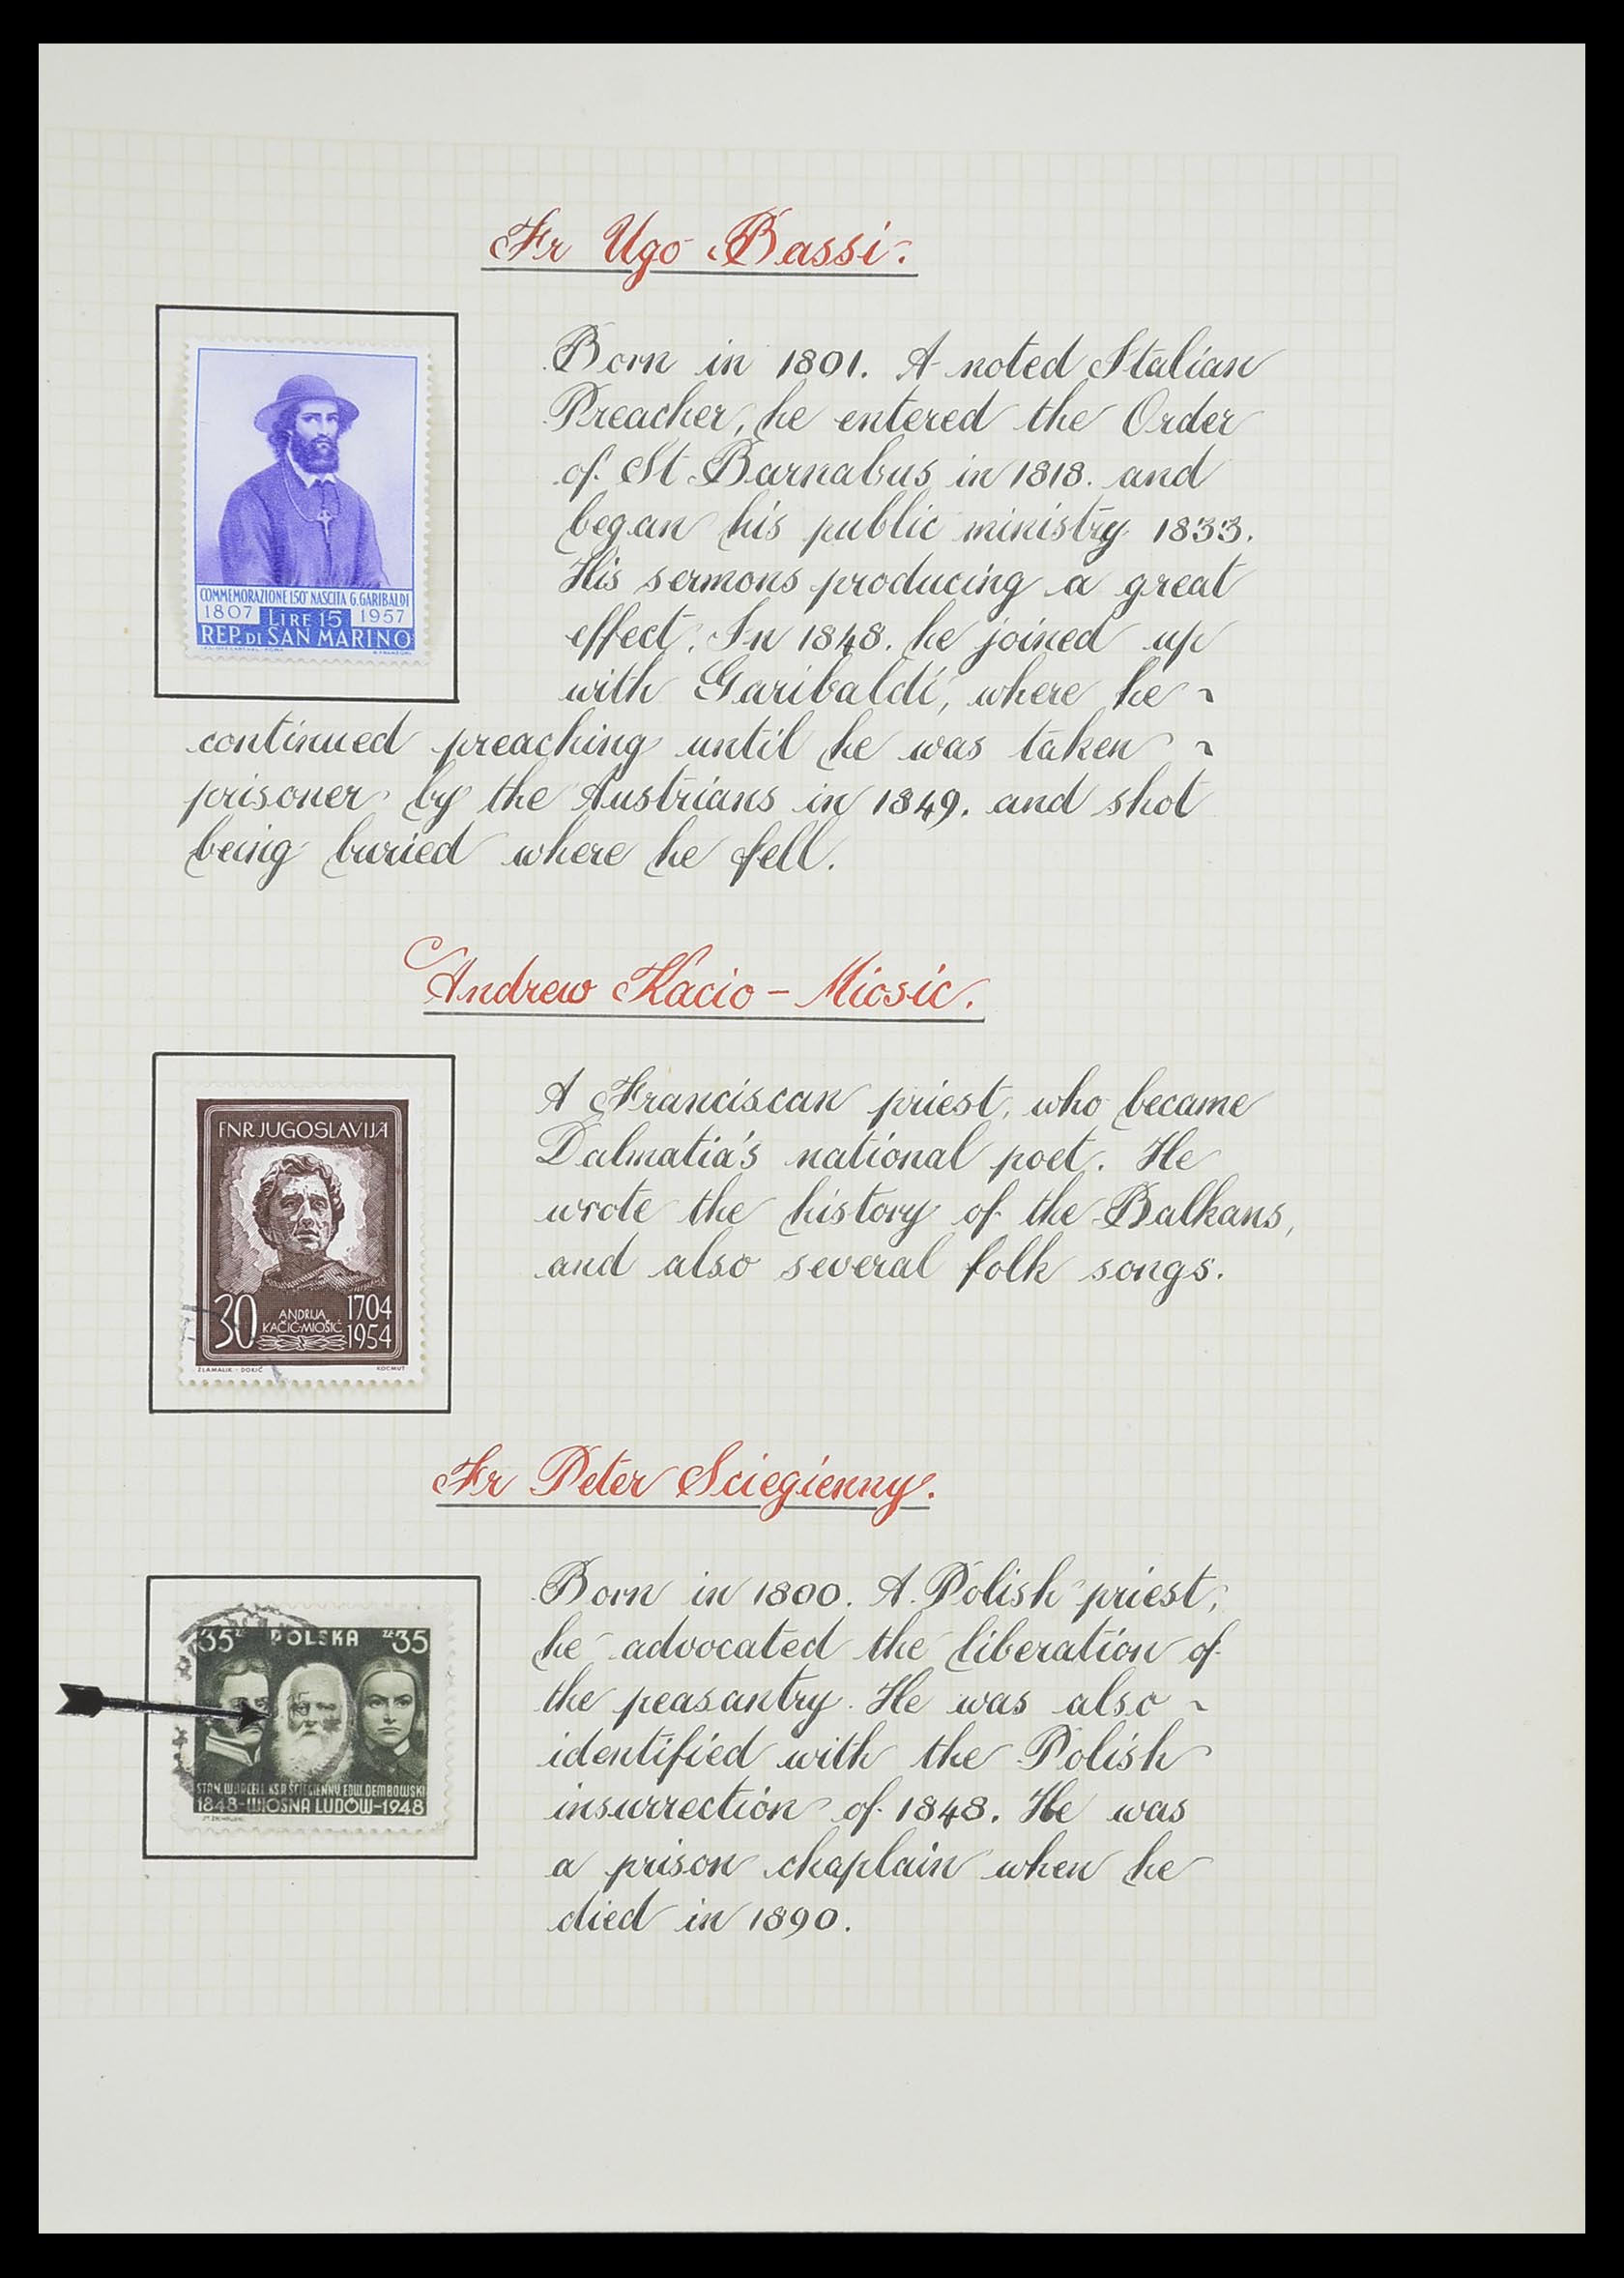 Fr Ugo Bassi.
COMMEMORAZIONE 150° NASCITA G. GARIBALDI
1807 LIRE 15 1957
REP. DI SAN MARINO
Born in 1801. A noted Italian
Preacher, he entered the Order
of St Barnabus in 1818. and
began his public ministry 1833.
His sermons producing a great
effect. In 1848. he joined up
with Garibaldi, where he ~
continued preaching until he was taken ~
prisoner by the Austrians in 1849. and shot
being buried where he fell.
Andrew Kacio - Miosic.
FNR JUGOSLAVIJA
30 ANDRIJA KAČIĆ-MIOŠIĆ 1704 1954
ZLAMALIK - DOKIĆ KOCMUT
A Franciscan priest, who became
Dalmatia's national poet. He
wrote the history of the Balkans,
and also several folk songs.
Fr Peter Sciegienny.
35 ZŁ POLSKA ZŁ 35
STAN. WORCELL KS. P. ŚCIEGIENNY EDW. DEMBOWSKI
1848-WIOSNA LUDÓW-1948
Born in 1800. A Polish priest,
he advocated the liberation of
the peasantry. He was also ~
identified with the Polish
insurrection of 1848. He was
a prison chaplain when he
died in 1890.